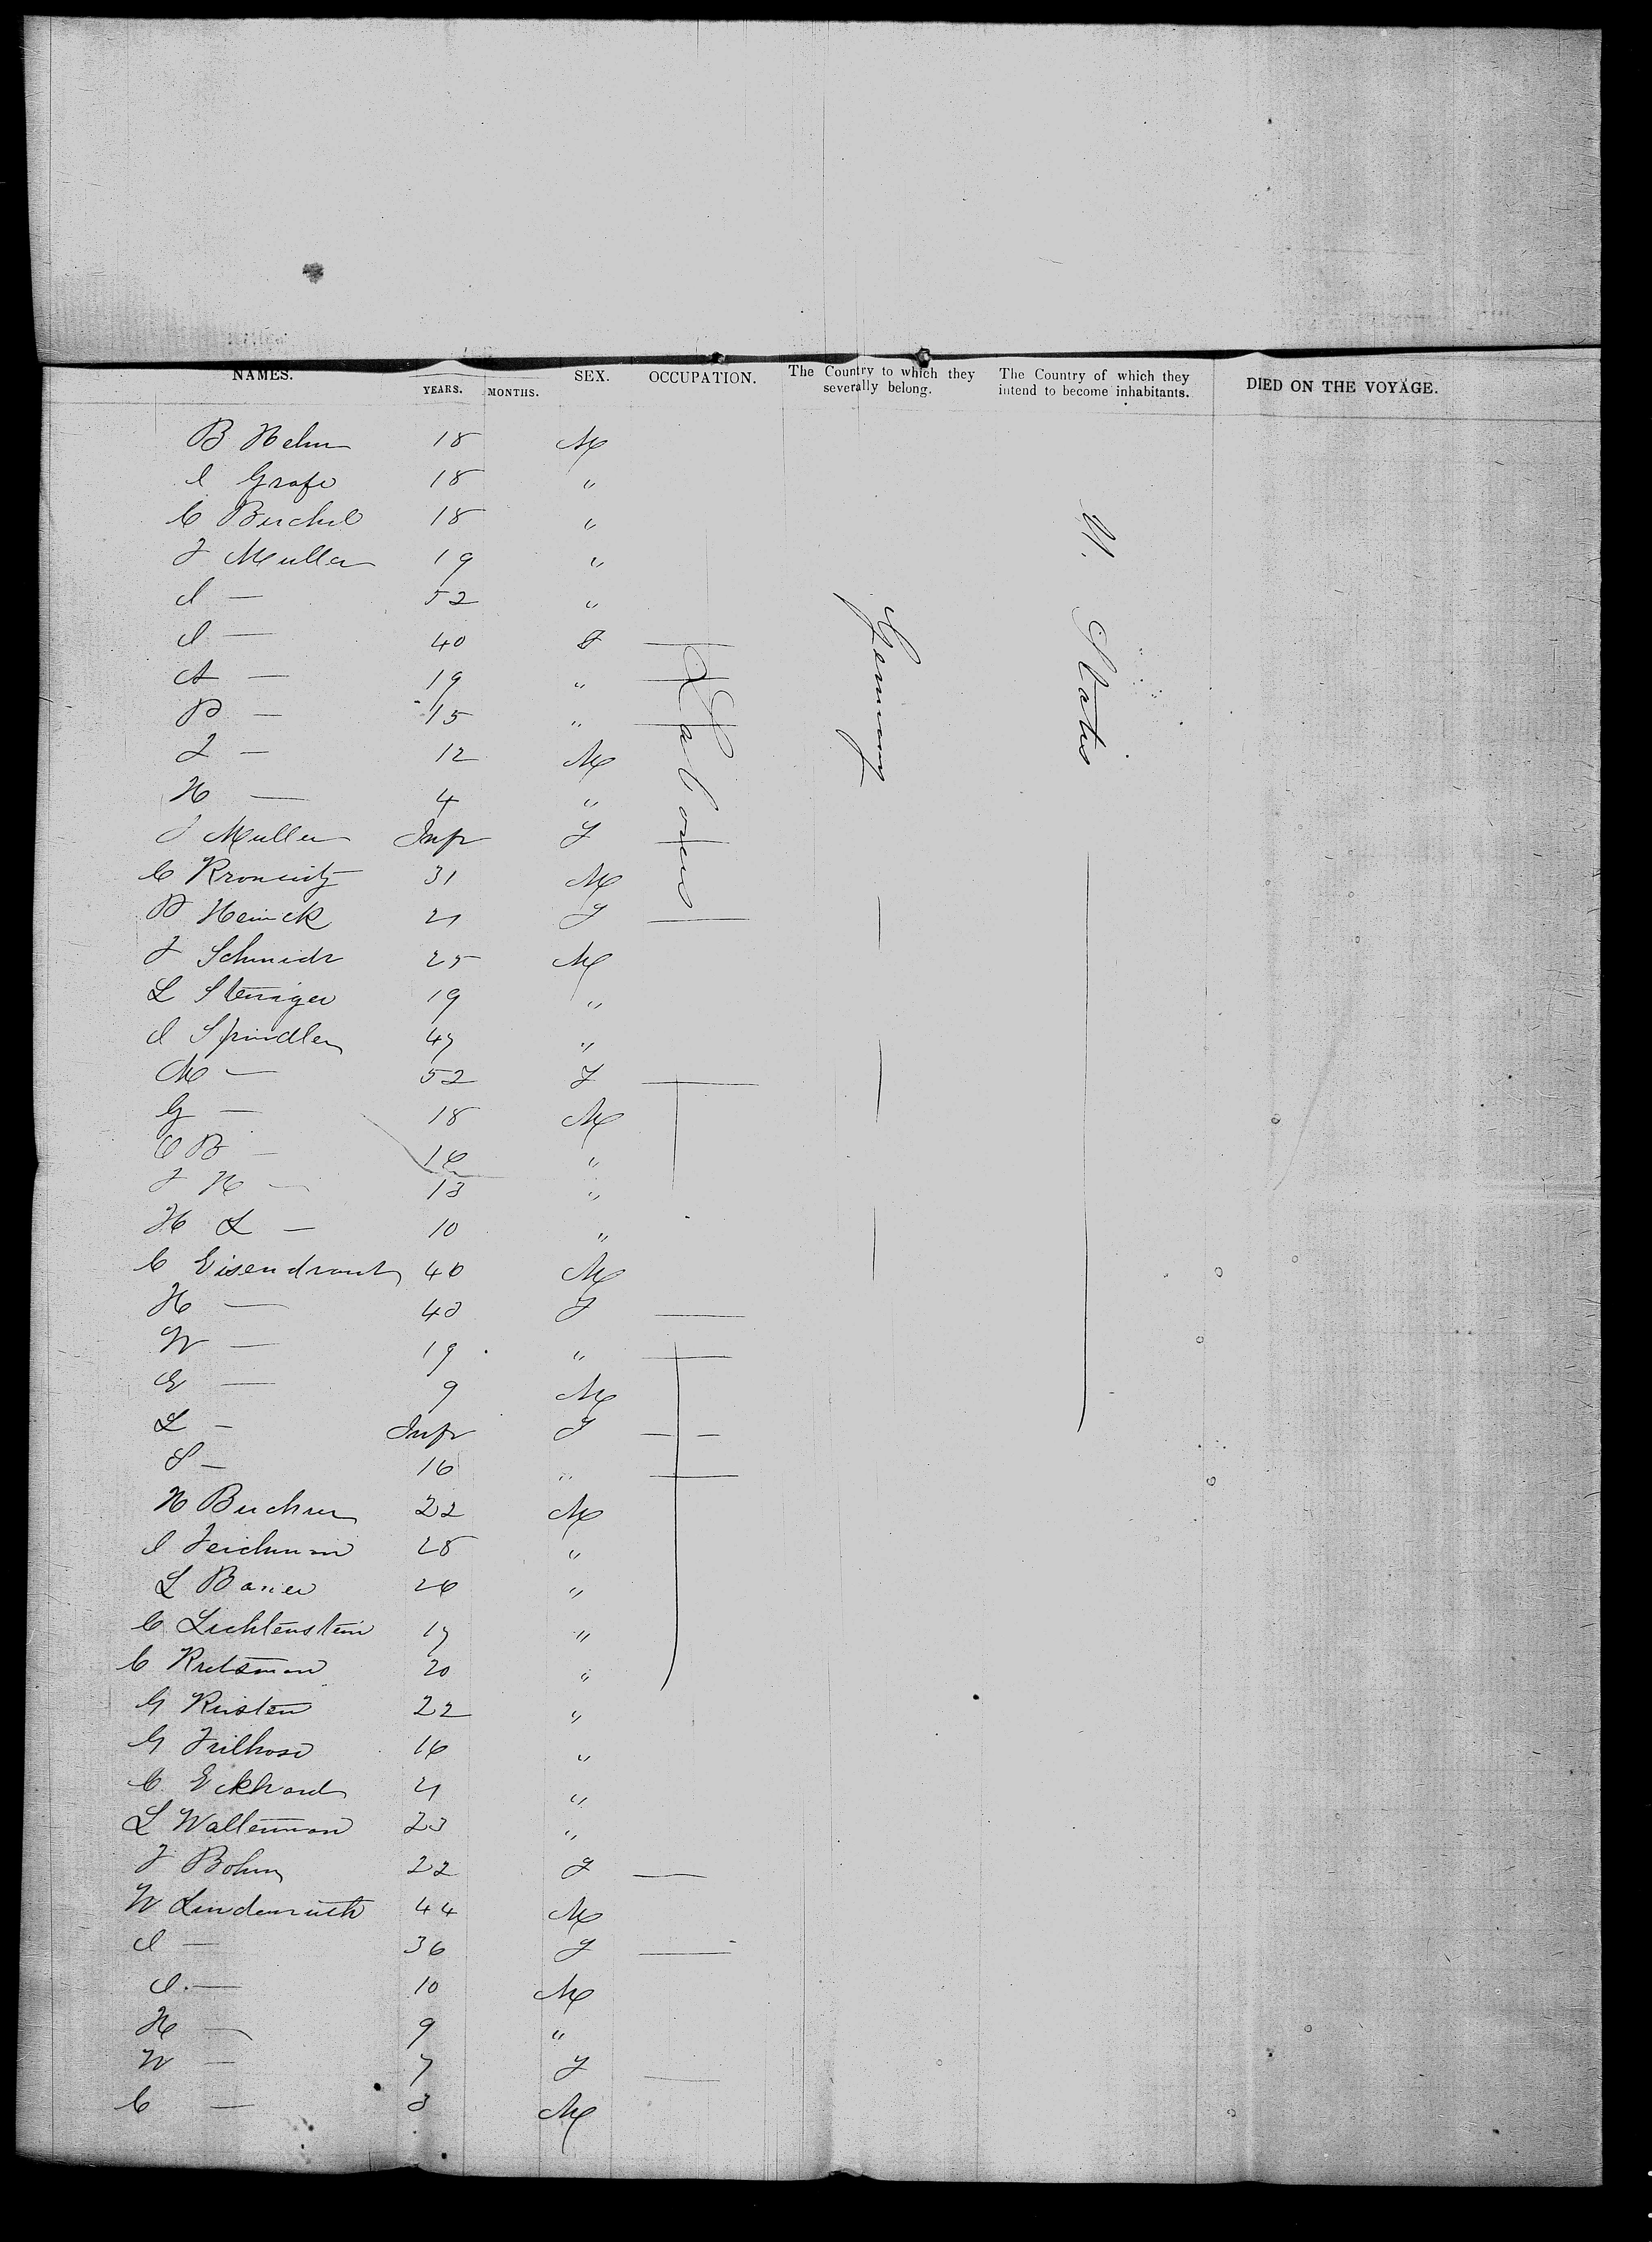 NAMES. YEARS. MONTHS. SEX. OCCUPATION. The Country to which they severally belong. The Country of which they intend to become inhabitants. DIED ON THE VOYAGE.
B Helm 18 M
I Grafe 18 "
C 18 "
J Muller 19 "
I — 52 "
I — 40 F
A — 19 "
B — 15 "
J — 12 M
H — 4 "
J Muller Inft F
C 31 M
B Heinck 21 F
J Schmidt 25 M
L 19 "
I Spindler 47 "
M — 52 F
G — 18 M
C B — 16 "
J H — 13 "
H L — 10 "
C Eisendraut 40 M
H — 43 F
W — 19 "
E — 9 M
L — Inft F
S — 16 "
H Buchner 22 M
I Teichman 28 "
L Bauer 26 "
C Lichtenstein 17 "
C 20 "
G 22 "
G 16 "
C Eckhardt 21 "
L Walterman 23 "
J Bohm 22 F
W Lindenruth 44 M
I — 36 F
I — 10 M
H — 9 "
W — 7 F
C — 3 M
Labourers
Germany
U. States